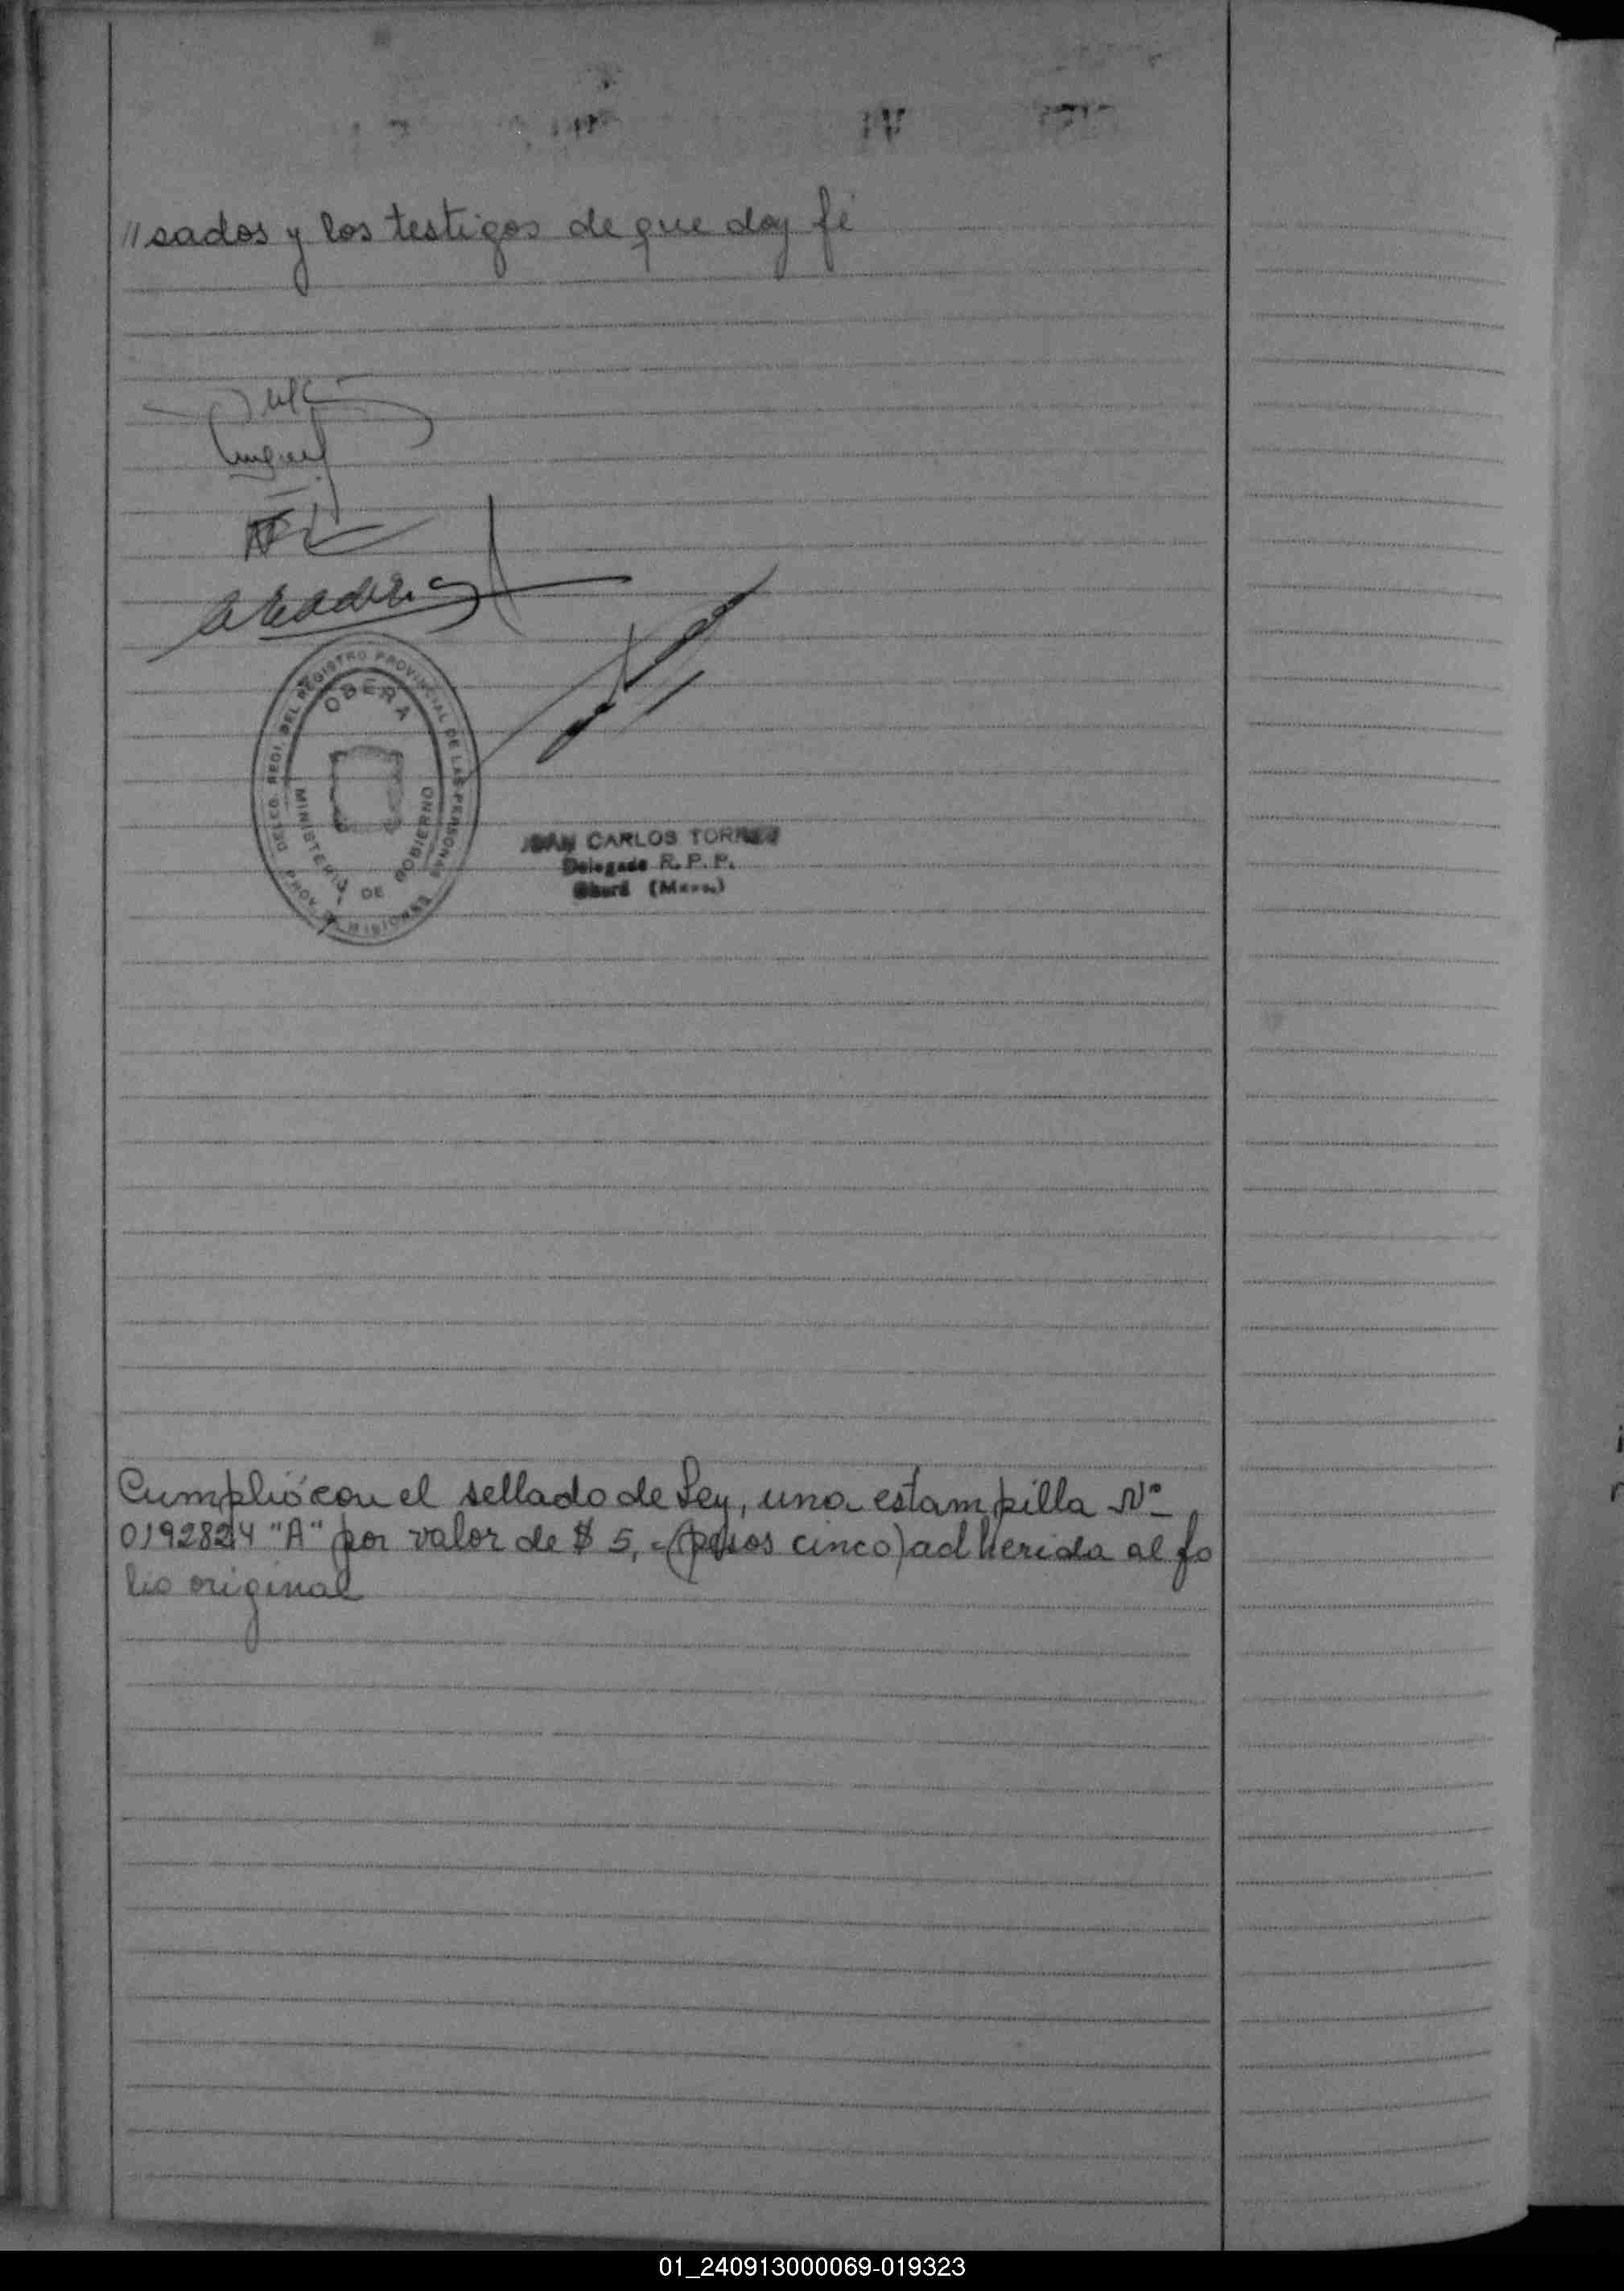 //sados y los testigos de que doy fé
OBERA
DELEG. REGI. DEL REGISTRO PROVINCIAL DE LAS PERSONAS
MINISTERIO DE GOBIERNO
PROV. MISIONES
JUAN CARLOS TORRES
Delegado R. P. P.
Oberá (Mnes.)
Cumplió con el sellado de Ley, una estampilla Nº
"A" por valor de $ 5,= (pesos cinco) adherida al fo
lio original
01_240913000069-019323